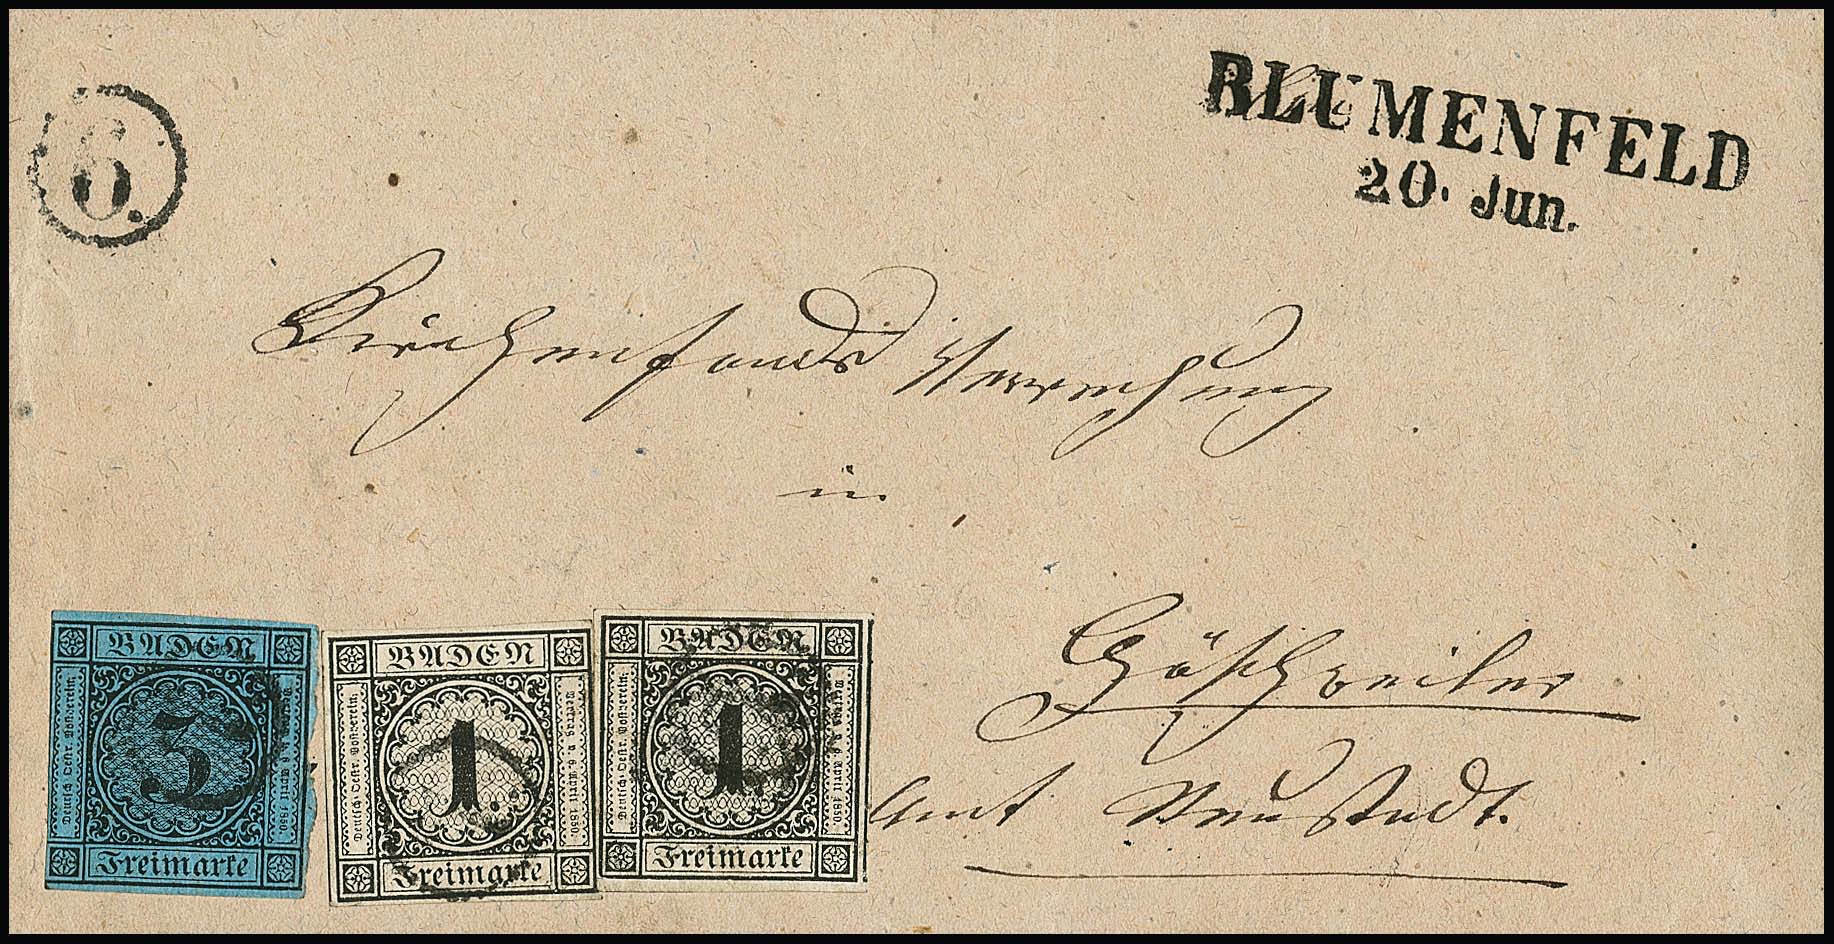 6.
BLUMENFELD
20. Jun.
Kirchenfonds Verrechung
in
Göschweiler
Amt Neustadt.
BADEN
Deutsch-Oestr. Postverein.
3
Vertrag v. 6 April 1850.
Freimarke
BADEN
Deutsch-Oestr. Postverein.
1
Vertrag v. 6. April 1850.
Freimarke
BADEN
Deutsch-Oestr. Postverein.
1
Vertrag v. 6 April 1850.
Freimarke